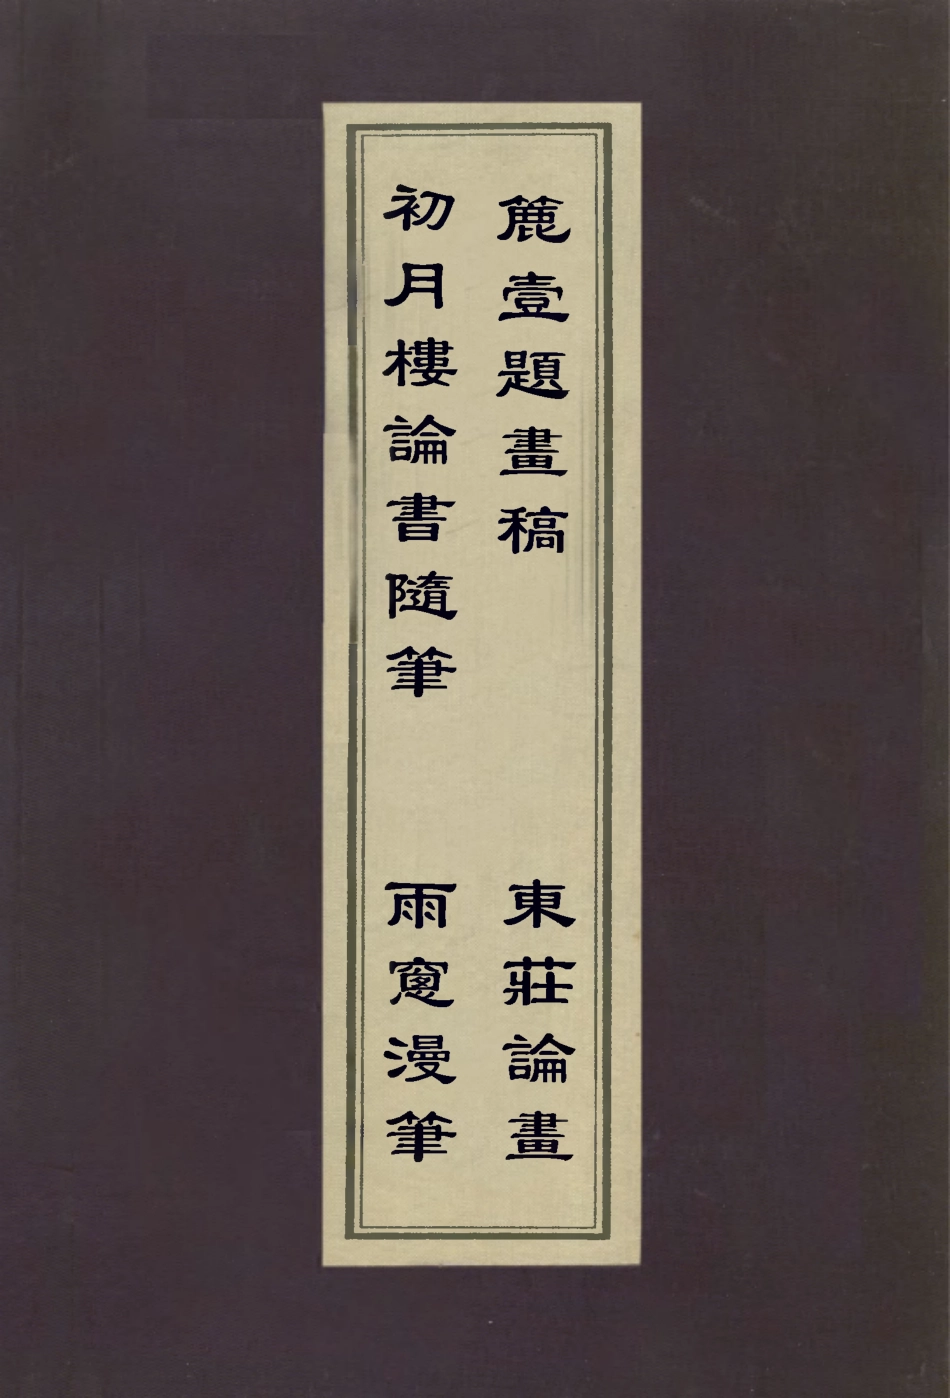 簏壹題畫稿
東莊論畫
初月樓論書隨筆
雨窻漫筆